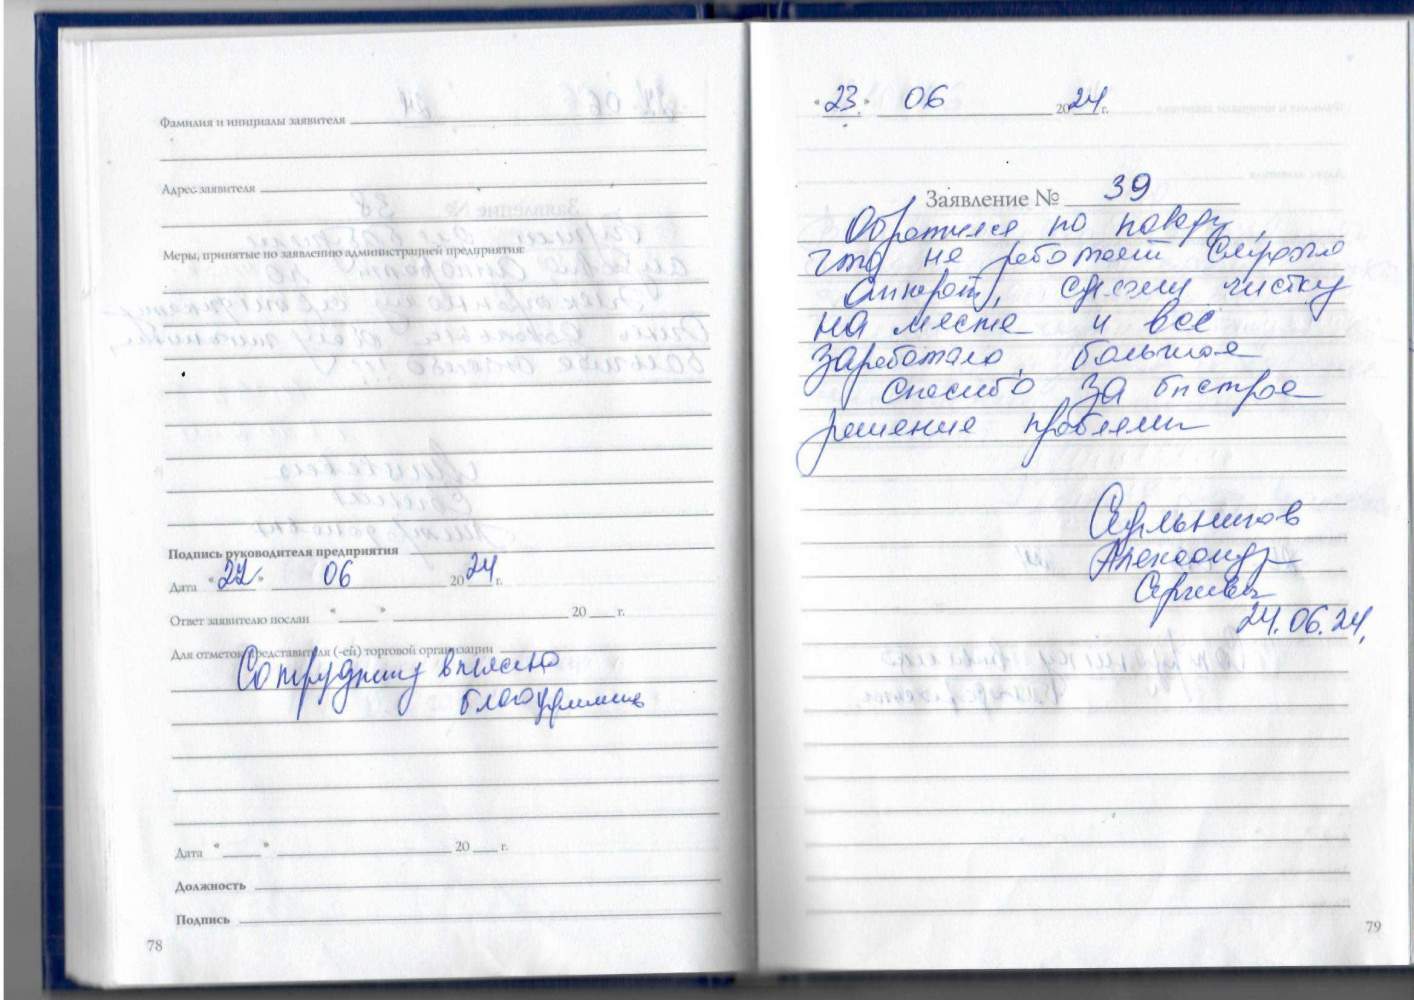 Фамилия и инициалы заявителя
Адрес заявителя
Меры, принятые по заявлению администрацией предприятия:
Подпись руководителя предприятия
Дата "22" 06 2024 г.
Ответ заявителю послан " " 20 г.
Для отметок представителя (-ей) торговой организации
Сотруднику внесено
Дата " " 20 г.
Должность
Подпись
78
"23" 06 2024 г.
Заявление № 39
Обратился по поводу,
что не работает
аппарат, сделали чистку
на месте и все
заработало, большое
спасибо за быстрое
решение проблемы
Александр
24.06.24.
79